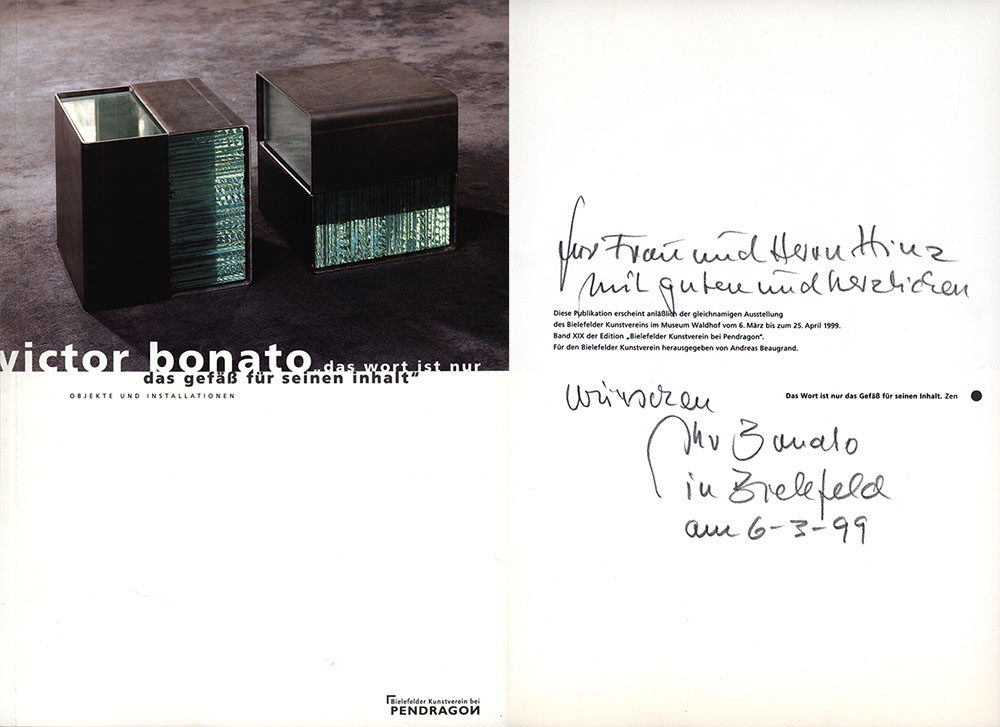 victor bonato „das wort ist nur
das gefäß für seinen inhalt“
OBJEKTE UND INSTALLATIONEN
Bielefelder Kunstverein bei
PENDRAGON
für Frau und Herrn Hinz
mit guten und herzlichen
Diese Publikation erscheint anläßlich der gleichnamigen Ausstellung
des Bielefelder Kunstvereins im Museum Waldhof vom 6. März bis zum 25. April 1999.
Band XIX der Edition „Bielefelder Kunstverein bei Pendragon“.
Für den Bielefelder Kunstverein herausgegeben von Andreas Beaugrand.
Das Wort ist nur das Gefäß für seinen Inhalt. Zen
Wünschen
Ihr Bonato
in Bielefeld
am 6-3-99